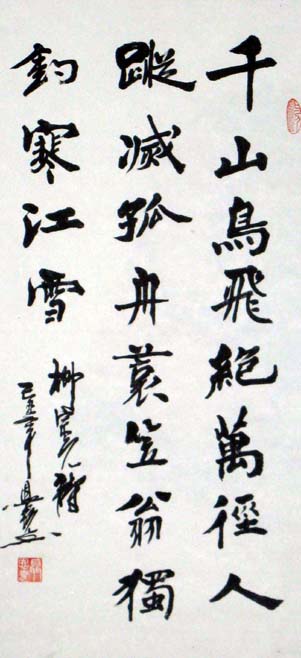 千山鳥飛絕萬徑人
蹤滅孤舟蓑笠翁獨
釣寒江雪
柳宗元詩
己丑年